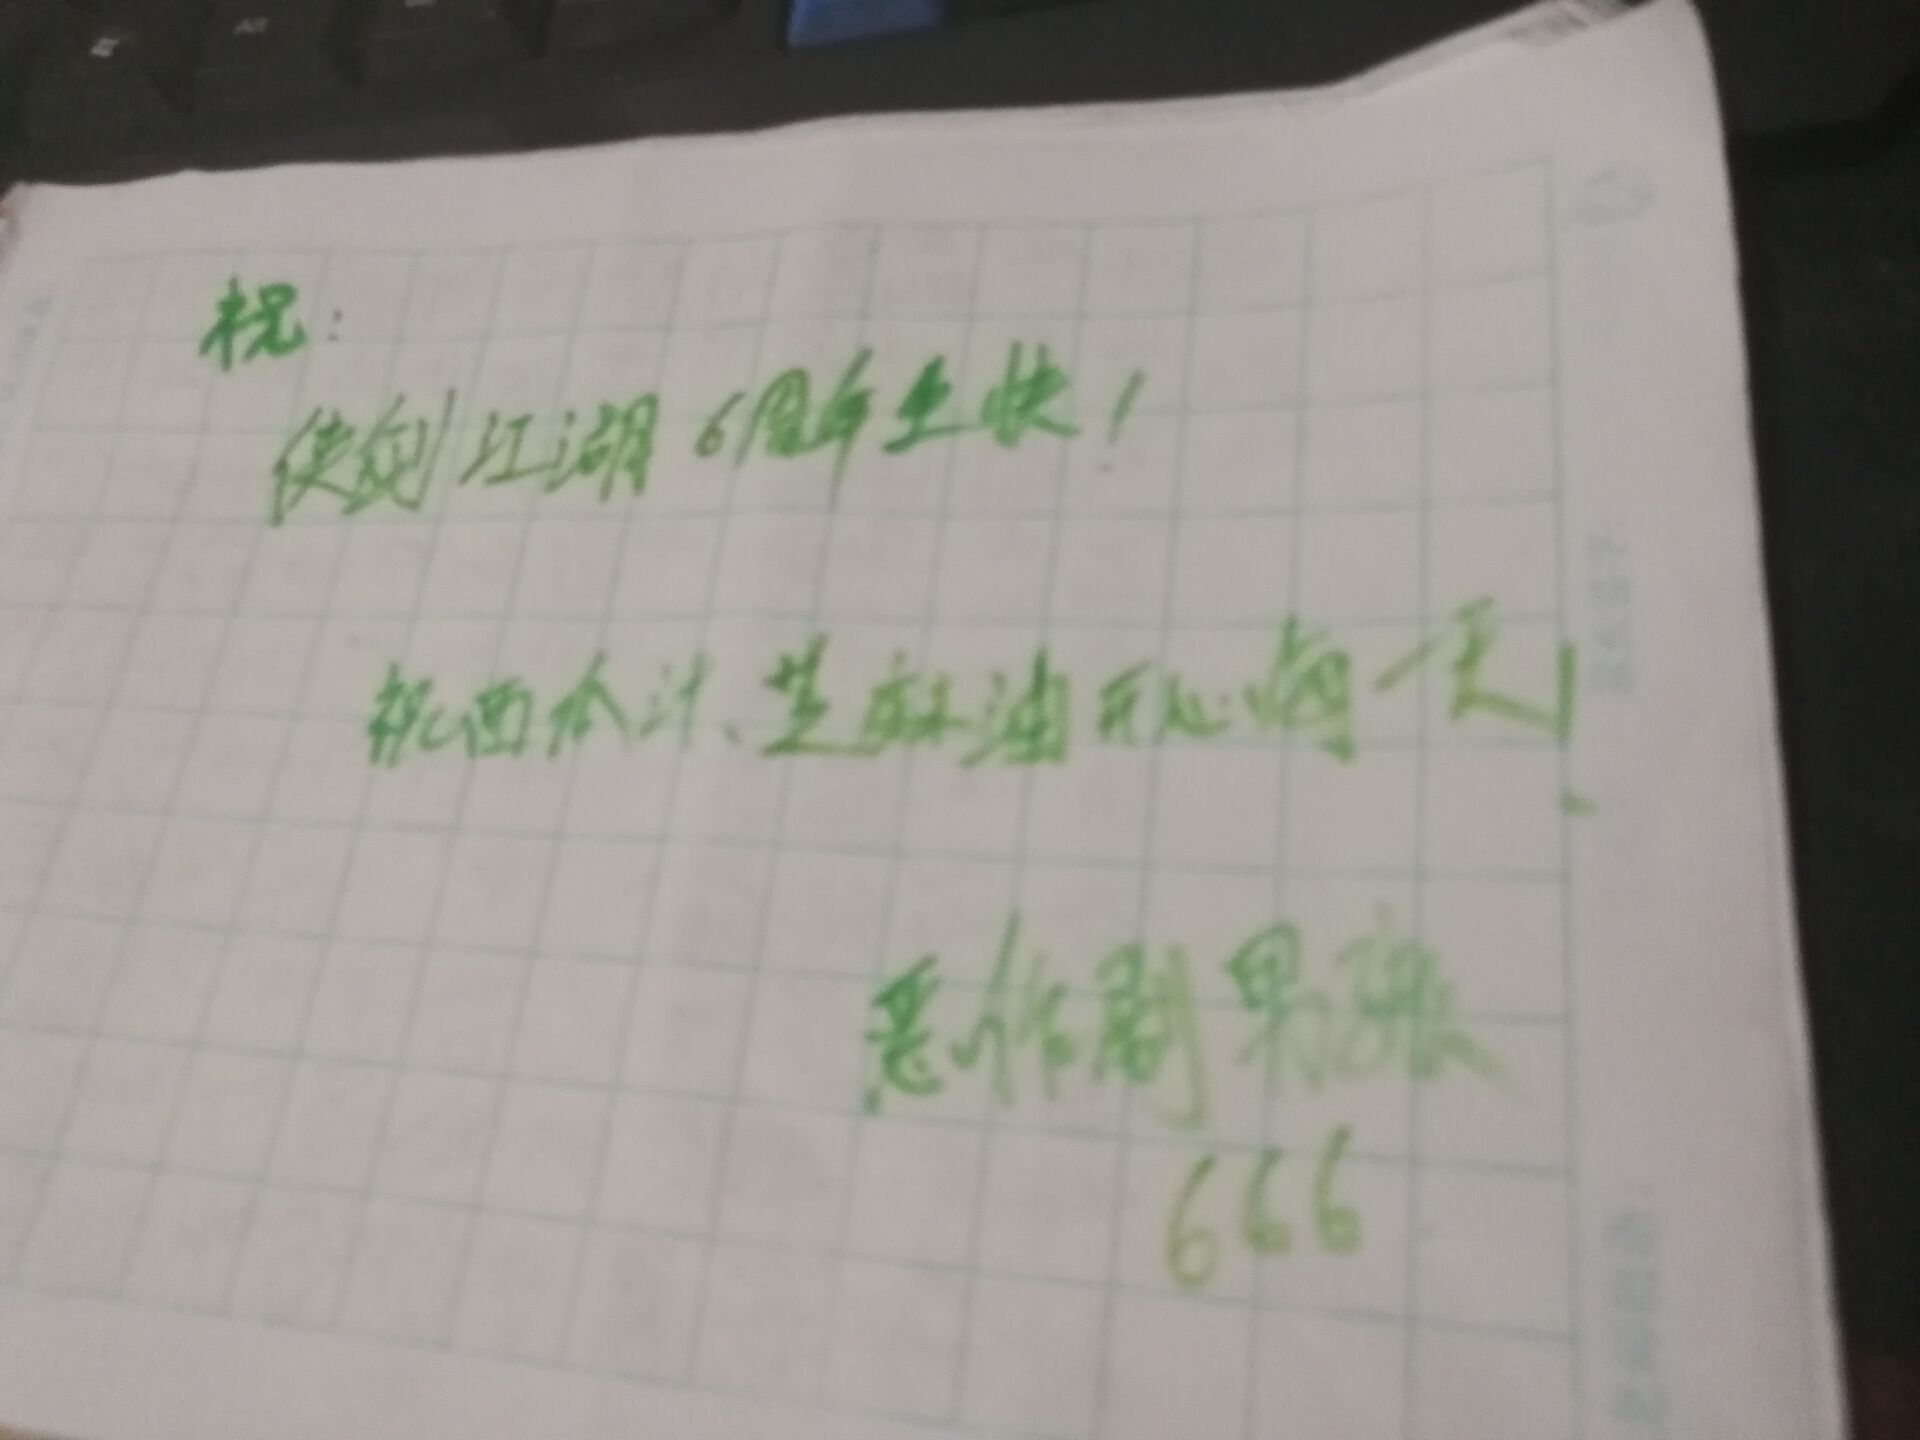 祝:
侠剑江湖 6周年生快!
祝西瓜汁、芝麻油开心每一天!
恶作剧男孩
666